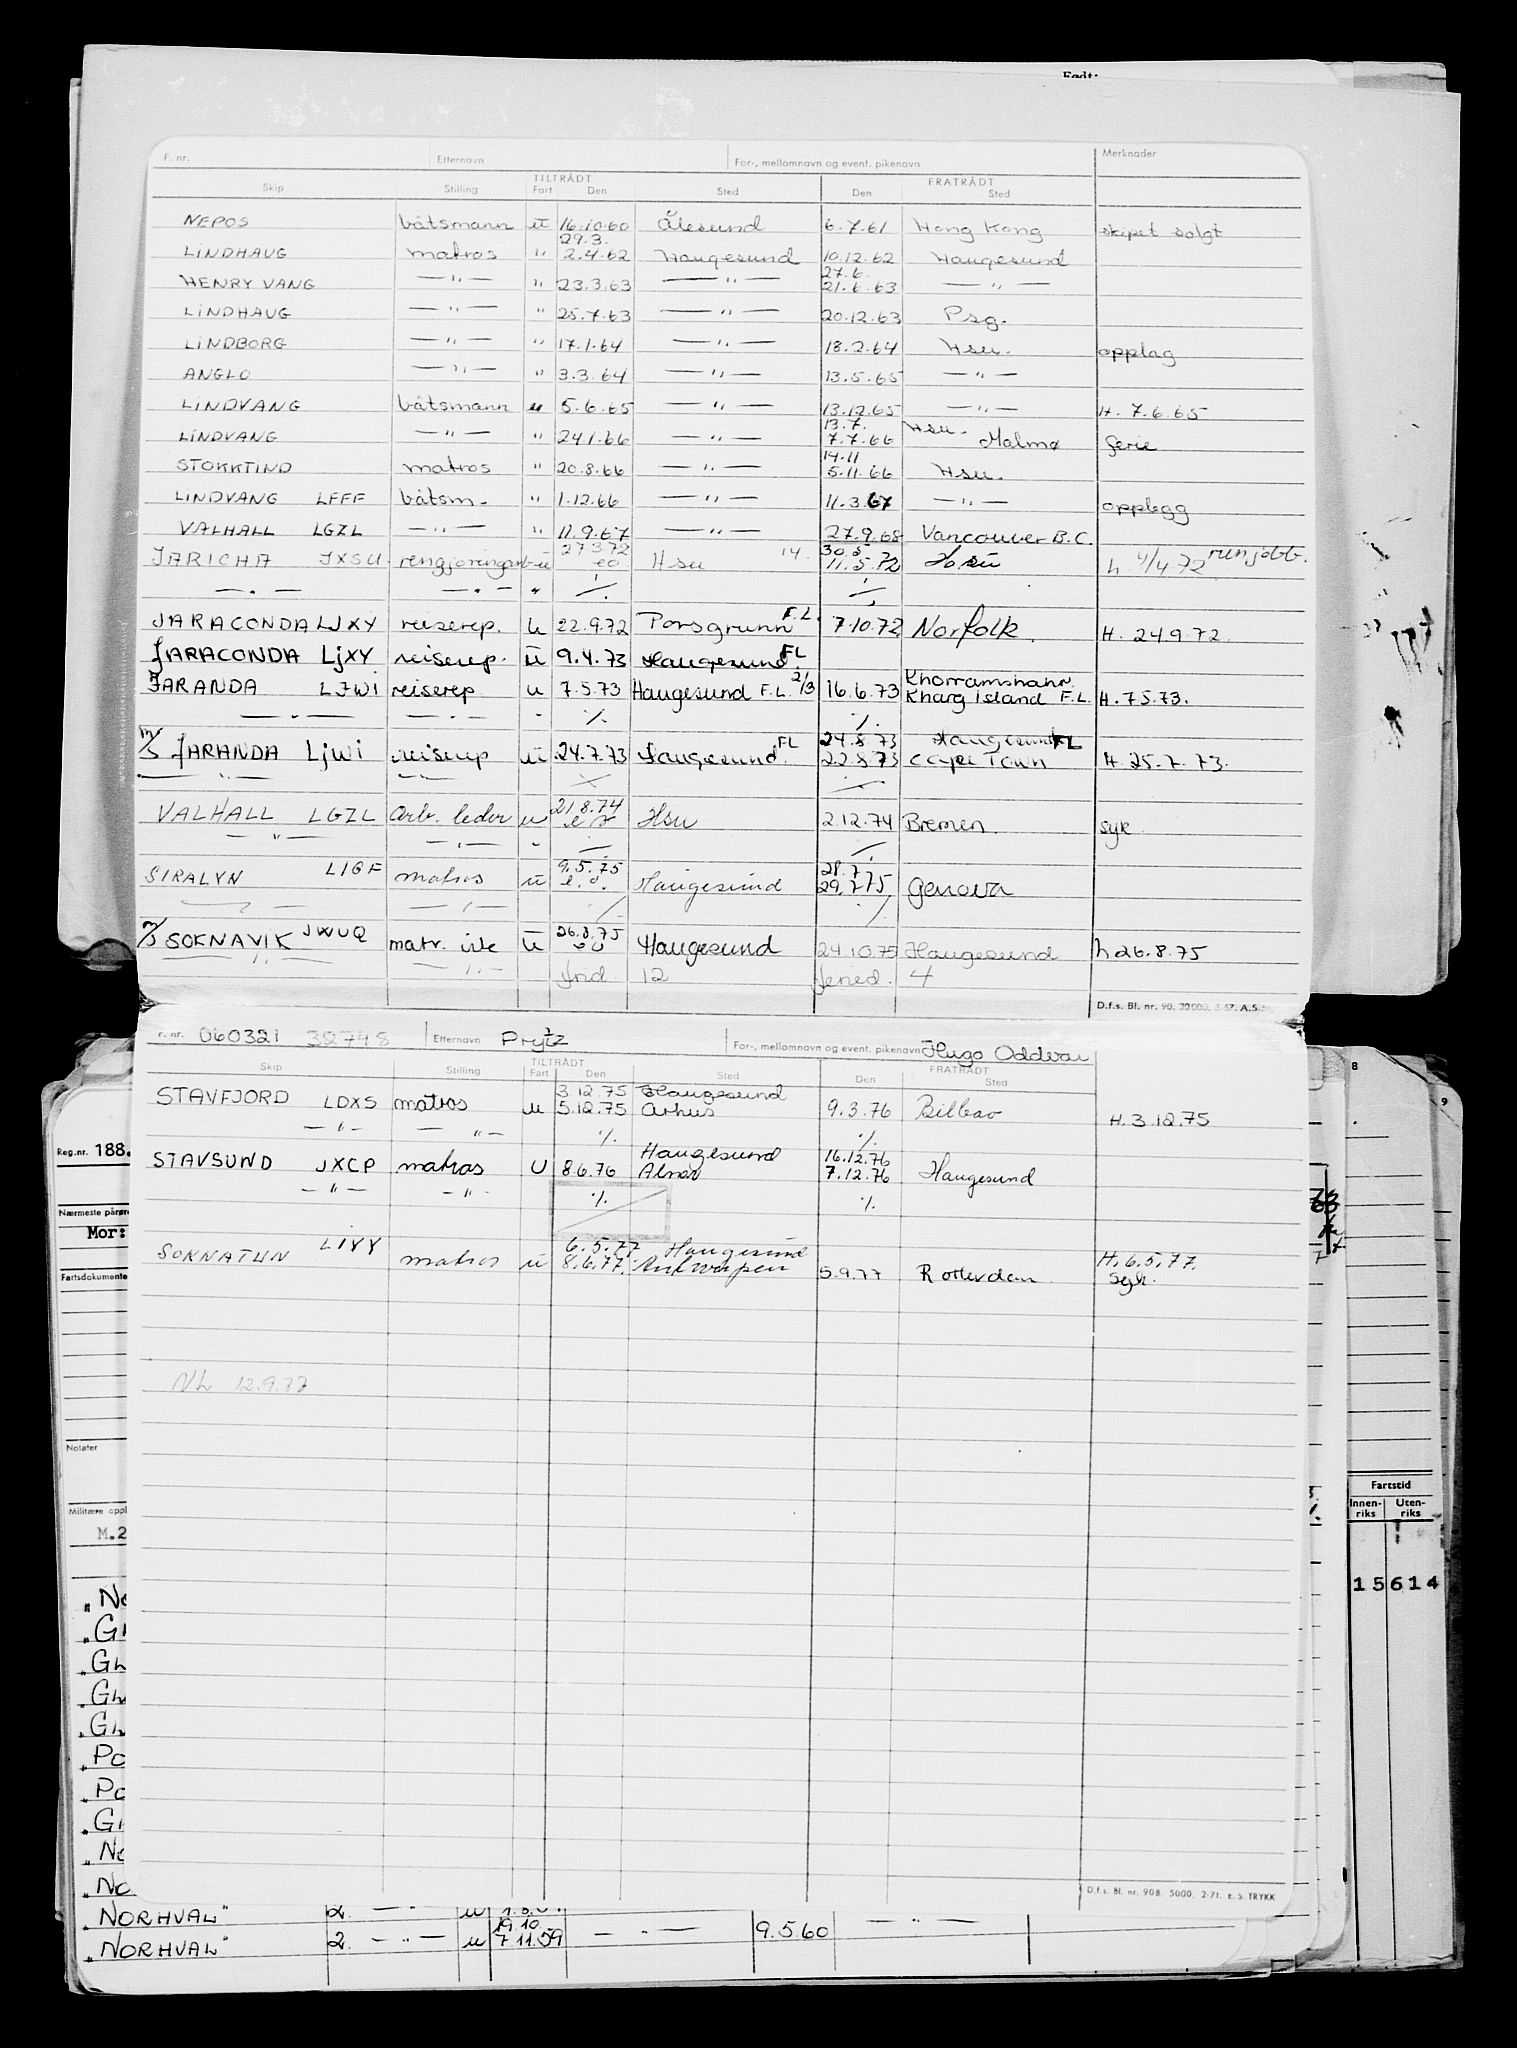 Født:
F. nr. Etternavn For-, mellomnavn og event. pikenavn Merknader
TILTRÅDT FRATRÅDT
Skip Stilling Fart Den Sted Den Sted
NEPOS båtsmann u 16.10.60 Ålesund 6.7.61 Hong Kong skipet solgt
29.3.
LINDHAUG matros " 2.4.62 Haugesund 10.12.62 Haugesund
27.6.
HENRY VANG — " — " 23.3.63 — " — 21.6.63 — " —
LINDHAUG — " — " 25.7.63 — " — 20.12.63 Psg.
LINDBORG — " — " 17.1.64 — " — 18.2.64 Hsu. opplag
ANGLO — " — " 3.3.64 — " — 13.5.65 — " —
LINDVANG båtsmann u 5.6.65 — " — 13.12.65 — " — H. 7.6.65
13.7. Hsu.
LINDVANG — " — " 24.1.66 — " — 7.7.66 Malmø ferie
14.11
STOKKTIND matros " 20.8.66 — " — 5.11.66 Hsu.
LINDVANG LFFF båtsm. " 1.12.66 — " — 11.3.67 — " — opplegg
VALHALL LGZL — " — " 11.9.67 — " — 27.9.68 Vancouver B.C.
27.3.72 14. 30.5
JARICHA JXSU rengjøringsarb u eo Hsu 11.5.72 Hsu h. 4/4 72 runjobb.
— " — — " — " ⁒ ⁒
JARACONDA LJXY reiserep. u 22.9.72 Porsgrunn F.L. 7.10.72 Norfolk. H. 24.9.72.
JARACONDA LJXY reiserep. u 9.4.73 Haugesund. FL
JARANDA LJWI reiserep u 7.5.73 Haugesund F.L. 2/3 16.6.73 Khorramshahr. Kharg island F.L. H. 7.5.73.
— " — — " — " ⁒ ⁒
24.8.73 Haugesund FL
M/S JARANDA LJWI reiserep u 24.7.73 Haugesund. FL 22.8.73 Cape Town H. 25.7.73.
— " — — " — ⁒
21.8.74
VALHALL LGZL Arb. leder u Hsu 2.12.74 Bremen. syk
— " — — " — " ⁒ ⁒
9.5.75 28.7
SIRALYN LIGF matros u e.o. Haugesund 29.7.75 Genova
— " — — " — ⁒ ⁒
26.8.75
M/S SOKNAVIK JWUQ matr. u eo Haugesund 24.10.75 Haugesund h 26.8.75
— " — — " — 12 4
D.f.s. Bl. nr. 90. 30000. 3-57. A.S.
F. nr. 060321 38748 Etternavn Prytz For-, mellomnavn og event. pikenavn Hugo Oddvar
TILTRÅDT FRATRÅDT
Skip Stilling Fart Den Sted Den Sted
3.12.75 Haugesund
STAVFJORD LDXS matros u 5.12.75 Århus 9.3.76 Bilbao H. 3.12.75
— " — — " — ⁒ ⁒
Haugesund 16.12.76
STAVSUND JXCP matros U 8.6.76 7.12.76 Haugesund
— " — — " — ⁒ ⁒
6.5.77 Haugesund
SOKNATUN LIYY matros u 8.6.77. Antwerpen 5.9.77 Rotterdam H. 6.5.77.
NL 12.9.77
D.f.s. Bl. nr. 90B. 5000. 2-71. E.S. TRYKK
Reg.nr. 188.
Nærmeste pårøre
Mor:
Fartsdokumente
Notater
Militære oppl
M.2
8
9
Fartstid
Innen-riks Uten-riks
15614
"NORHVAL" 2. — " — u
19.10
"NORHVAL" 2. — " — u 7.11.59 — " — 9.5.60 — " —